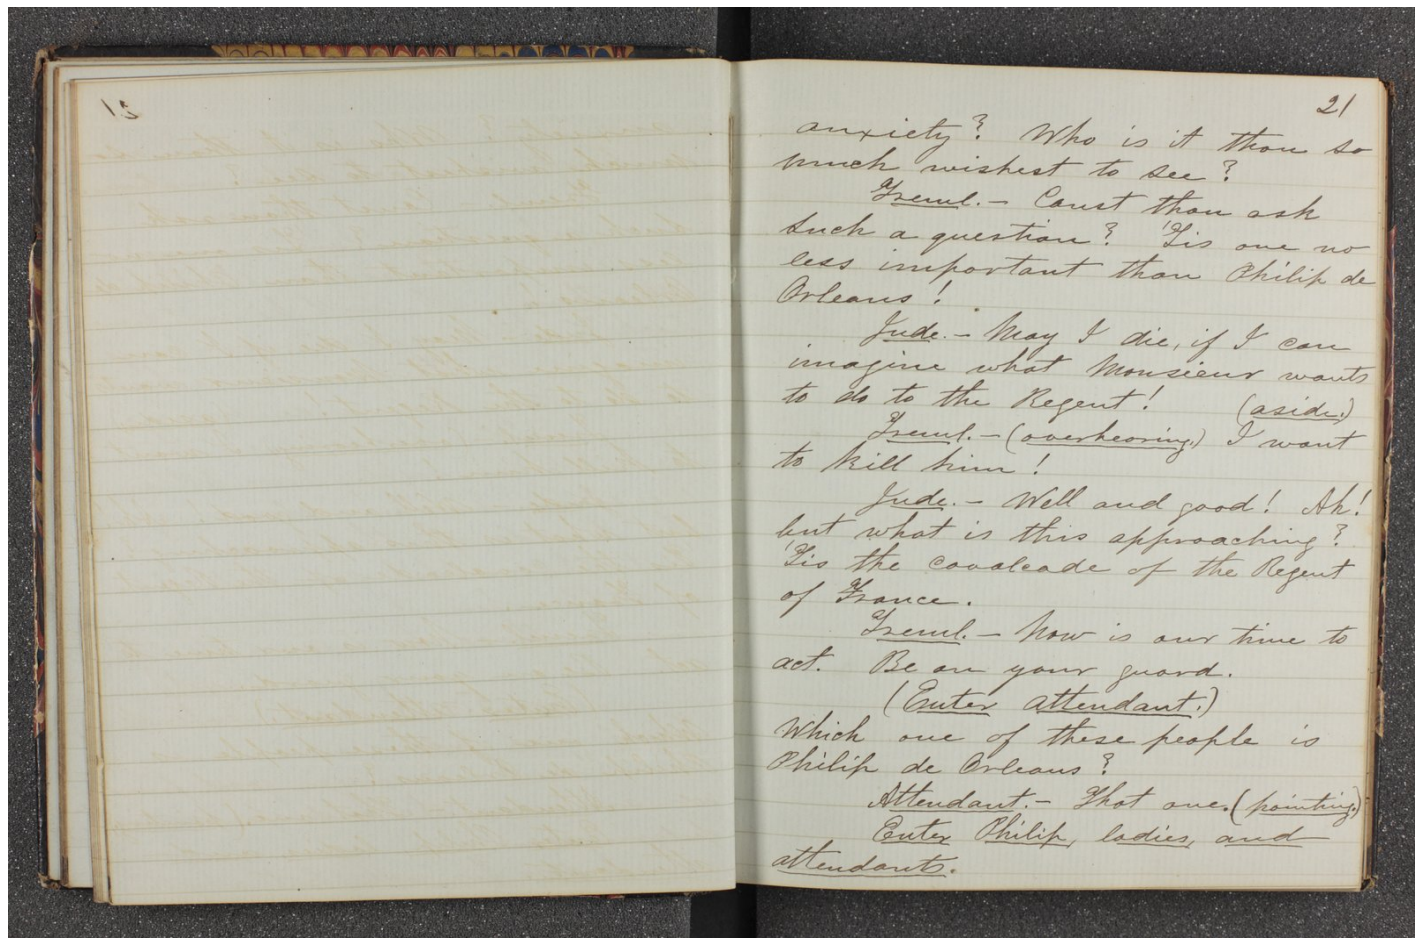 21
anxiety? Who is it thou so
much wishest to see?
Treml. – Canst thou ask
such a question? 'Tis one no
less important than Philip de
Orleans!
Jude. – May I die, if I can
imagine what Monsieur wants
to do to the Regent! (aside.)
Treml. – (overhearing.) I want
to kill him!
Jude. – Well and good! Ah!
but what is this approaching?
'Tis the cavalcade of the Regent
of France.
Treml. – Now is our time to
act. Be on your guard.
(Enter attendant.)
Which one of these people is
Philip de Orleans?
Attendant. – That one. (pointing.)
Enter Philip, ladies, and
attendants.